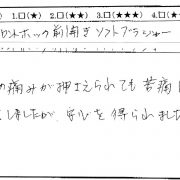 1.□(★) 2.□(★★) 3.□(★★★) 4.□(★
ロントホック前開きソフトブラジャー
の痛みが押えられても苦痛
くしましたが、安心を得られました